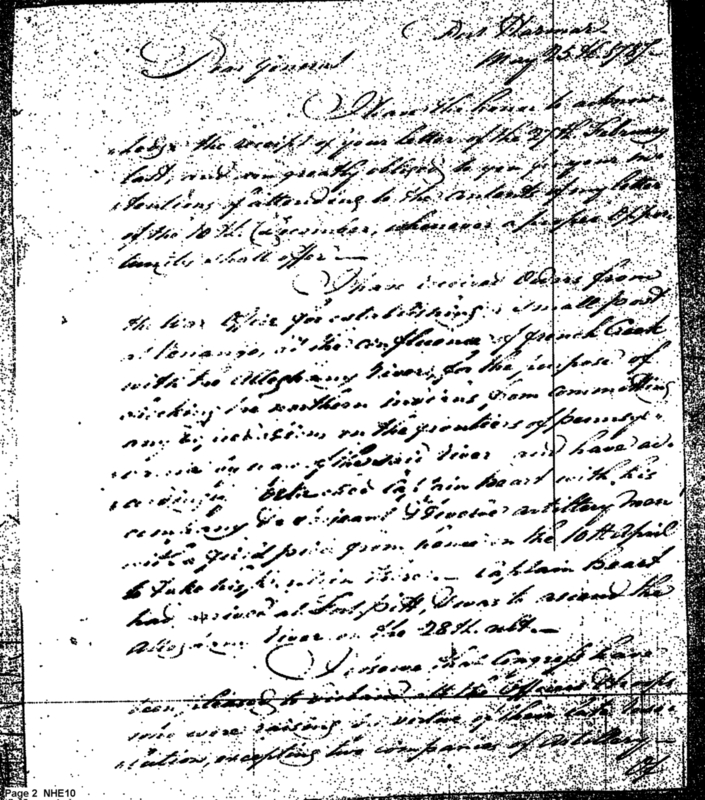 Fort Harmar
May 25th 1787
Dear General
I have the honor to acknow-
ledge the receipt of your letter of the 27th February
last, and am greatly obliged to you for your in
tentions of attending to the contents of my letter
of the 10th December, whenever a proper oppor
tunity shall offer —
I have received Orders from
the War Office for establishing a small post
at Venango, at the confluence of french Creek
with the Alleghany River, for the purpose of
the northern indians, from committing
any on the frontiers of pennsyl-
the said river and have ac-
cordingly Captain Heart with his
company Artillery Men
with a field piece from hence on the 10th April
to take his — Captain Heart
had arrived at Fort pitt, & was to ascend the
Alleghany River on the 28th ult. —
I observe that Congress have
been pleased to disband all the Officers & troops
who were raising in virtue of their late
excepting two companies of Artillery —
Page 2 NHE10